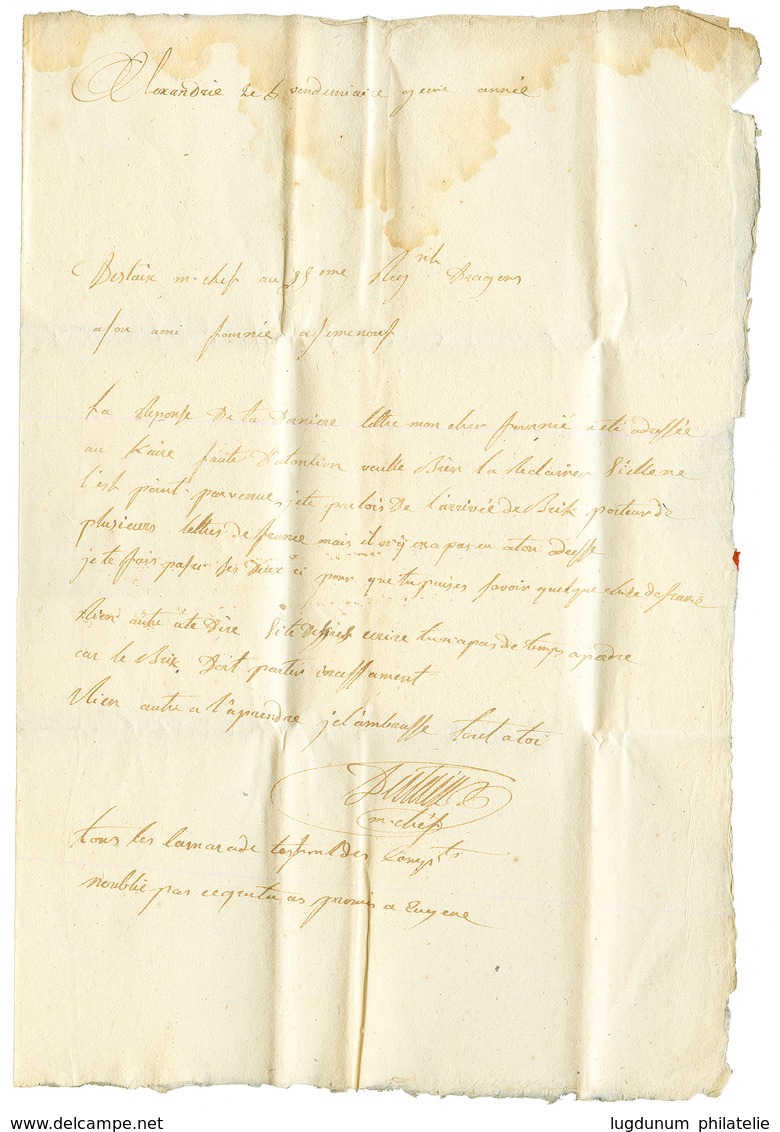 Alexandrie le 6 vendemiaire 9eme année
Destaix m. chef au eme Reg nt Dragons
a son ami fournié a
La Reponse De ta Derniere lettre mon cher fournié a eté adressée
au Kaire faute Datention veulle Bien la Reclamer Si elle ne
l'est point parvenue, je te parlois De l'arrivée de Brik porteur de
plusieurs lettres de france mais il n'y en a pas eu a ton adresse
je te fais passer ses Deux ci pour que tu puises savoir quelque chose de france
Rien autre a te Dire Si te Desires ecrire tu n'a pas de temps a perdre
car le Brix Doit partir incessament
Rien autre a t'aprendre je t'ambrasse tout a toi
Destaix
m. chef
tous les Camarade te font des Compts
n'oublie pas ce que tu as promis a Eugene
www.delcampe.net
lugdunum philatelie